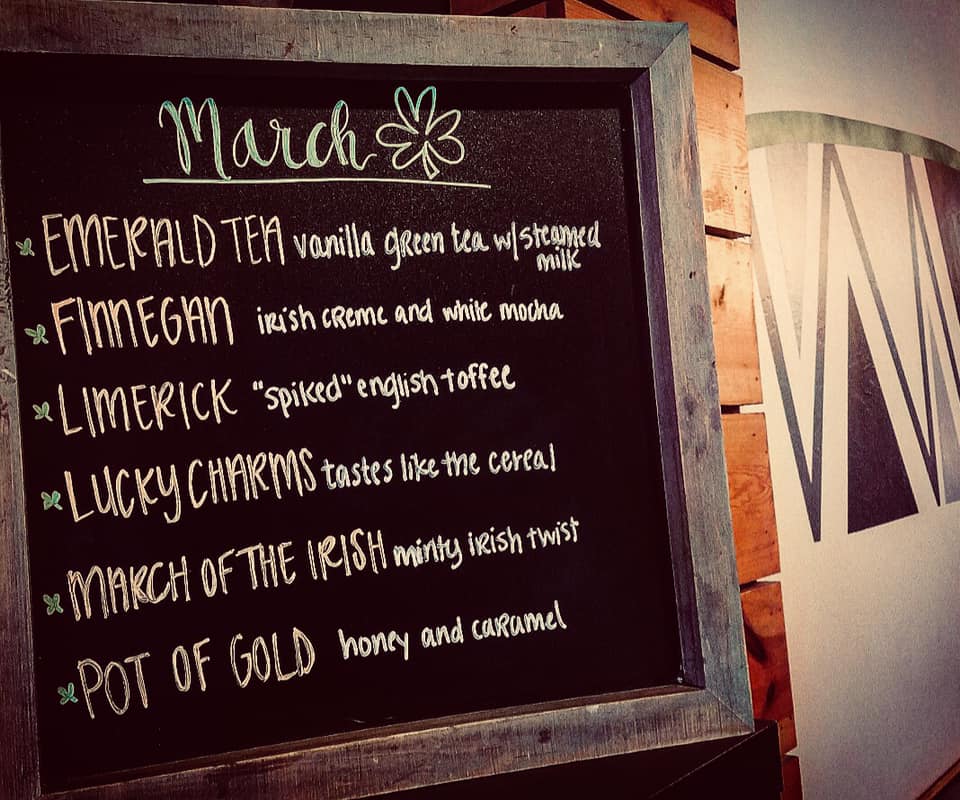 March
EMERALD TEA vanilla green tea w/steamed
milk
FINNEGAN irish creme and white mocha
LIMERICK "spiked" english toffee
LUCKY CHARMS tastes like the cereal
MARCH OF THE IRISH minty irish twist
POT OF GOLD honey and caramel